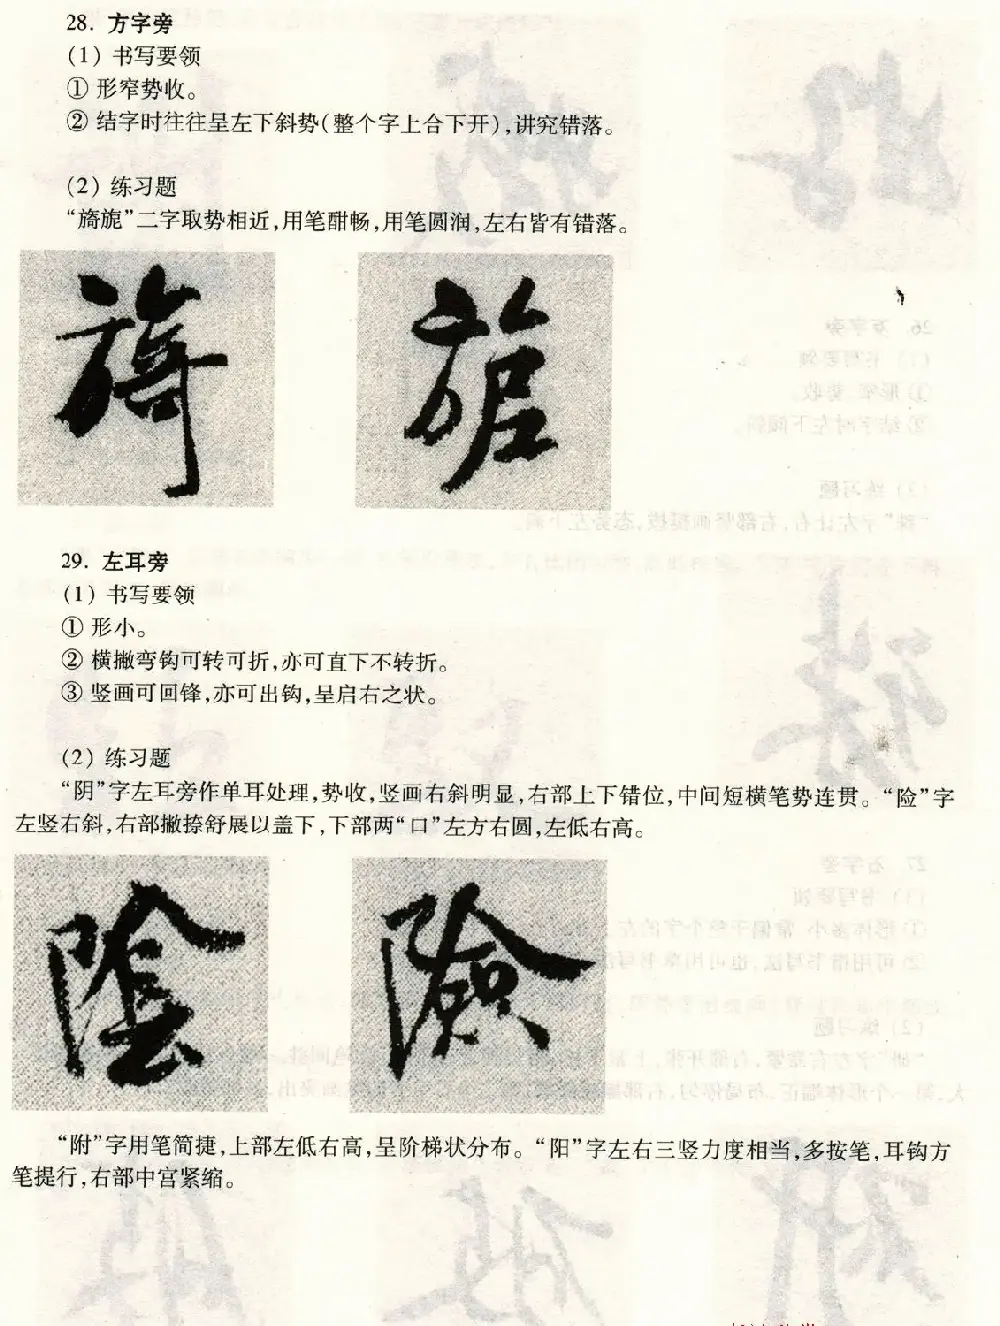 28. 方字旁
(1) 书写要领
① 形窄势收。
② 结字时往往呈左下斜势(整个字上合下开),讲究错落。
(2) 练习题
“旖旎”二字取势相近,用笔酣畅,用笔圆润,左右皆有错落。
旖 旎
29. 左耳旁
(1) 书写要领
① 形小。
② 横撇弯钩可转可折,亦可直下不转折。
③ 竖画可回锋,亦可出钩,呈启右之状。
(2) 练习题
“阴”字左耳旁作单耳处理,势收,竖画右斜明显,右部上下错位,中间短横笔势连贯。“险”字
左竖右斜,右部撇捺舒展以盖下,下部两“口”左方右圆,左低右高。
陰 險
“附”字用笔简捷,上部左低右高,呈阶梯状分布。“阳”字左右三竖力度相当,多按笔,耳钩方
笔提行,右部中宫紧缩。